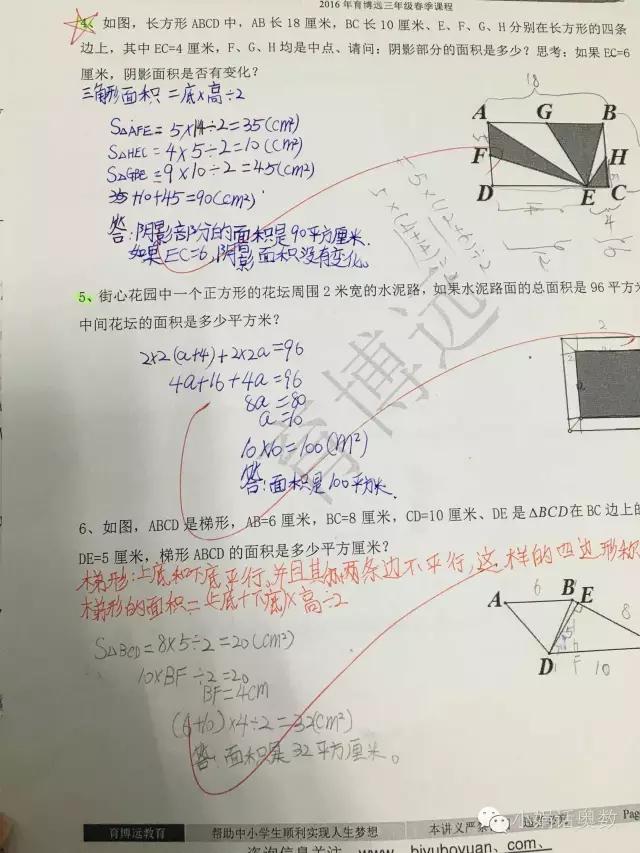 2016 年育博远三年级春季课程
4、如图，长方形 ABCD 中，AB 长 18 厘米，BC 长 10 厘米、E、F、G、H 分别在长方形的四条
边上，其中 EC=4 厘米，F、G、H 均是中点、请问：阴影部分的面积是多少？思考：如果 EC=6
厘米，阴影面积是否有变化？
三角形面积=底×高÷2
S△AFE=5×14÷2=35(cm²)
S△HEC=4×5÷2=10(cm²)
S△GBE=9×10÷2=45(cm²)
35+10+45=90(cm²)
答:阴影部分的面积是90平方厘米.
如果EC=6,阴影面积没有变化。
18
A G B
5
F H
D E C
14 4
12 6
5×(12+6)÷2
5×(4+14)÷2
5、街心花园中一个正方形的花坛周围 2 米宽的水泥路，如果水泥路面的总面积是 96 平方米
中间花坛的面积是多少平方米？
2×2(a+4)+2×2a=96
4a+16+4a=96
8a=80
a=10
10×10=100(m²)
答:面积是100平方米.
2
2
a
育博远
6、如图，ABCD 是梯形，AB=6 厘米，BC=8 厘米，CD=10 厘米、DE 是 ΔBCD 在 BC 边上的
DE=5 厘米，梯形 ABCD 的面积是多少平方厘米？
梯形:上底和下底平行,并且其他两条边不平行,这样的四边形称
梯形的面积=(上底+下底)×高÷2
S△BCD=8×5÷2=20(cm²)
10×BF÷2=20
BF=4cm
(6+10)×4÷2=32(cm²)
答:面积是32平方厘米。
6
A B E
8
5
D F 10
育博远教育 帮助中小学生顺利实现人生梦想 本讲义严禁
Page
小娟话奥数
咨询信息关注 www.biyuboyuan.com